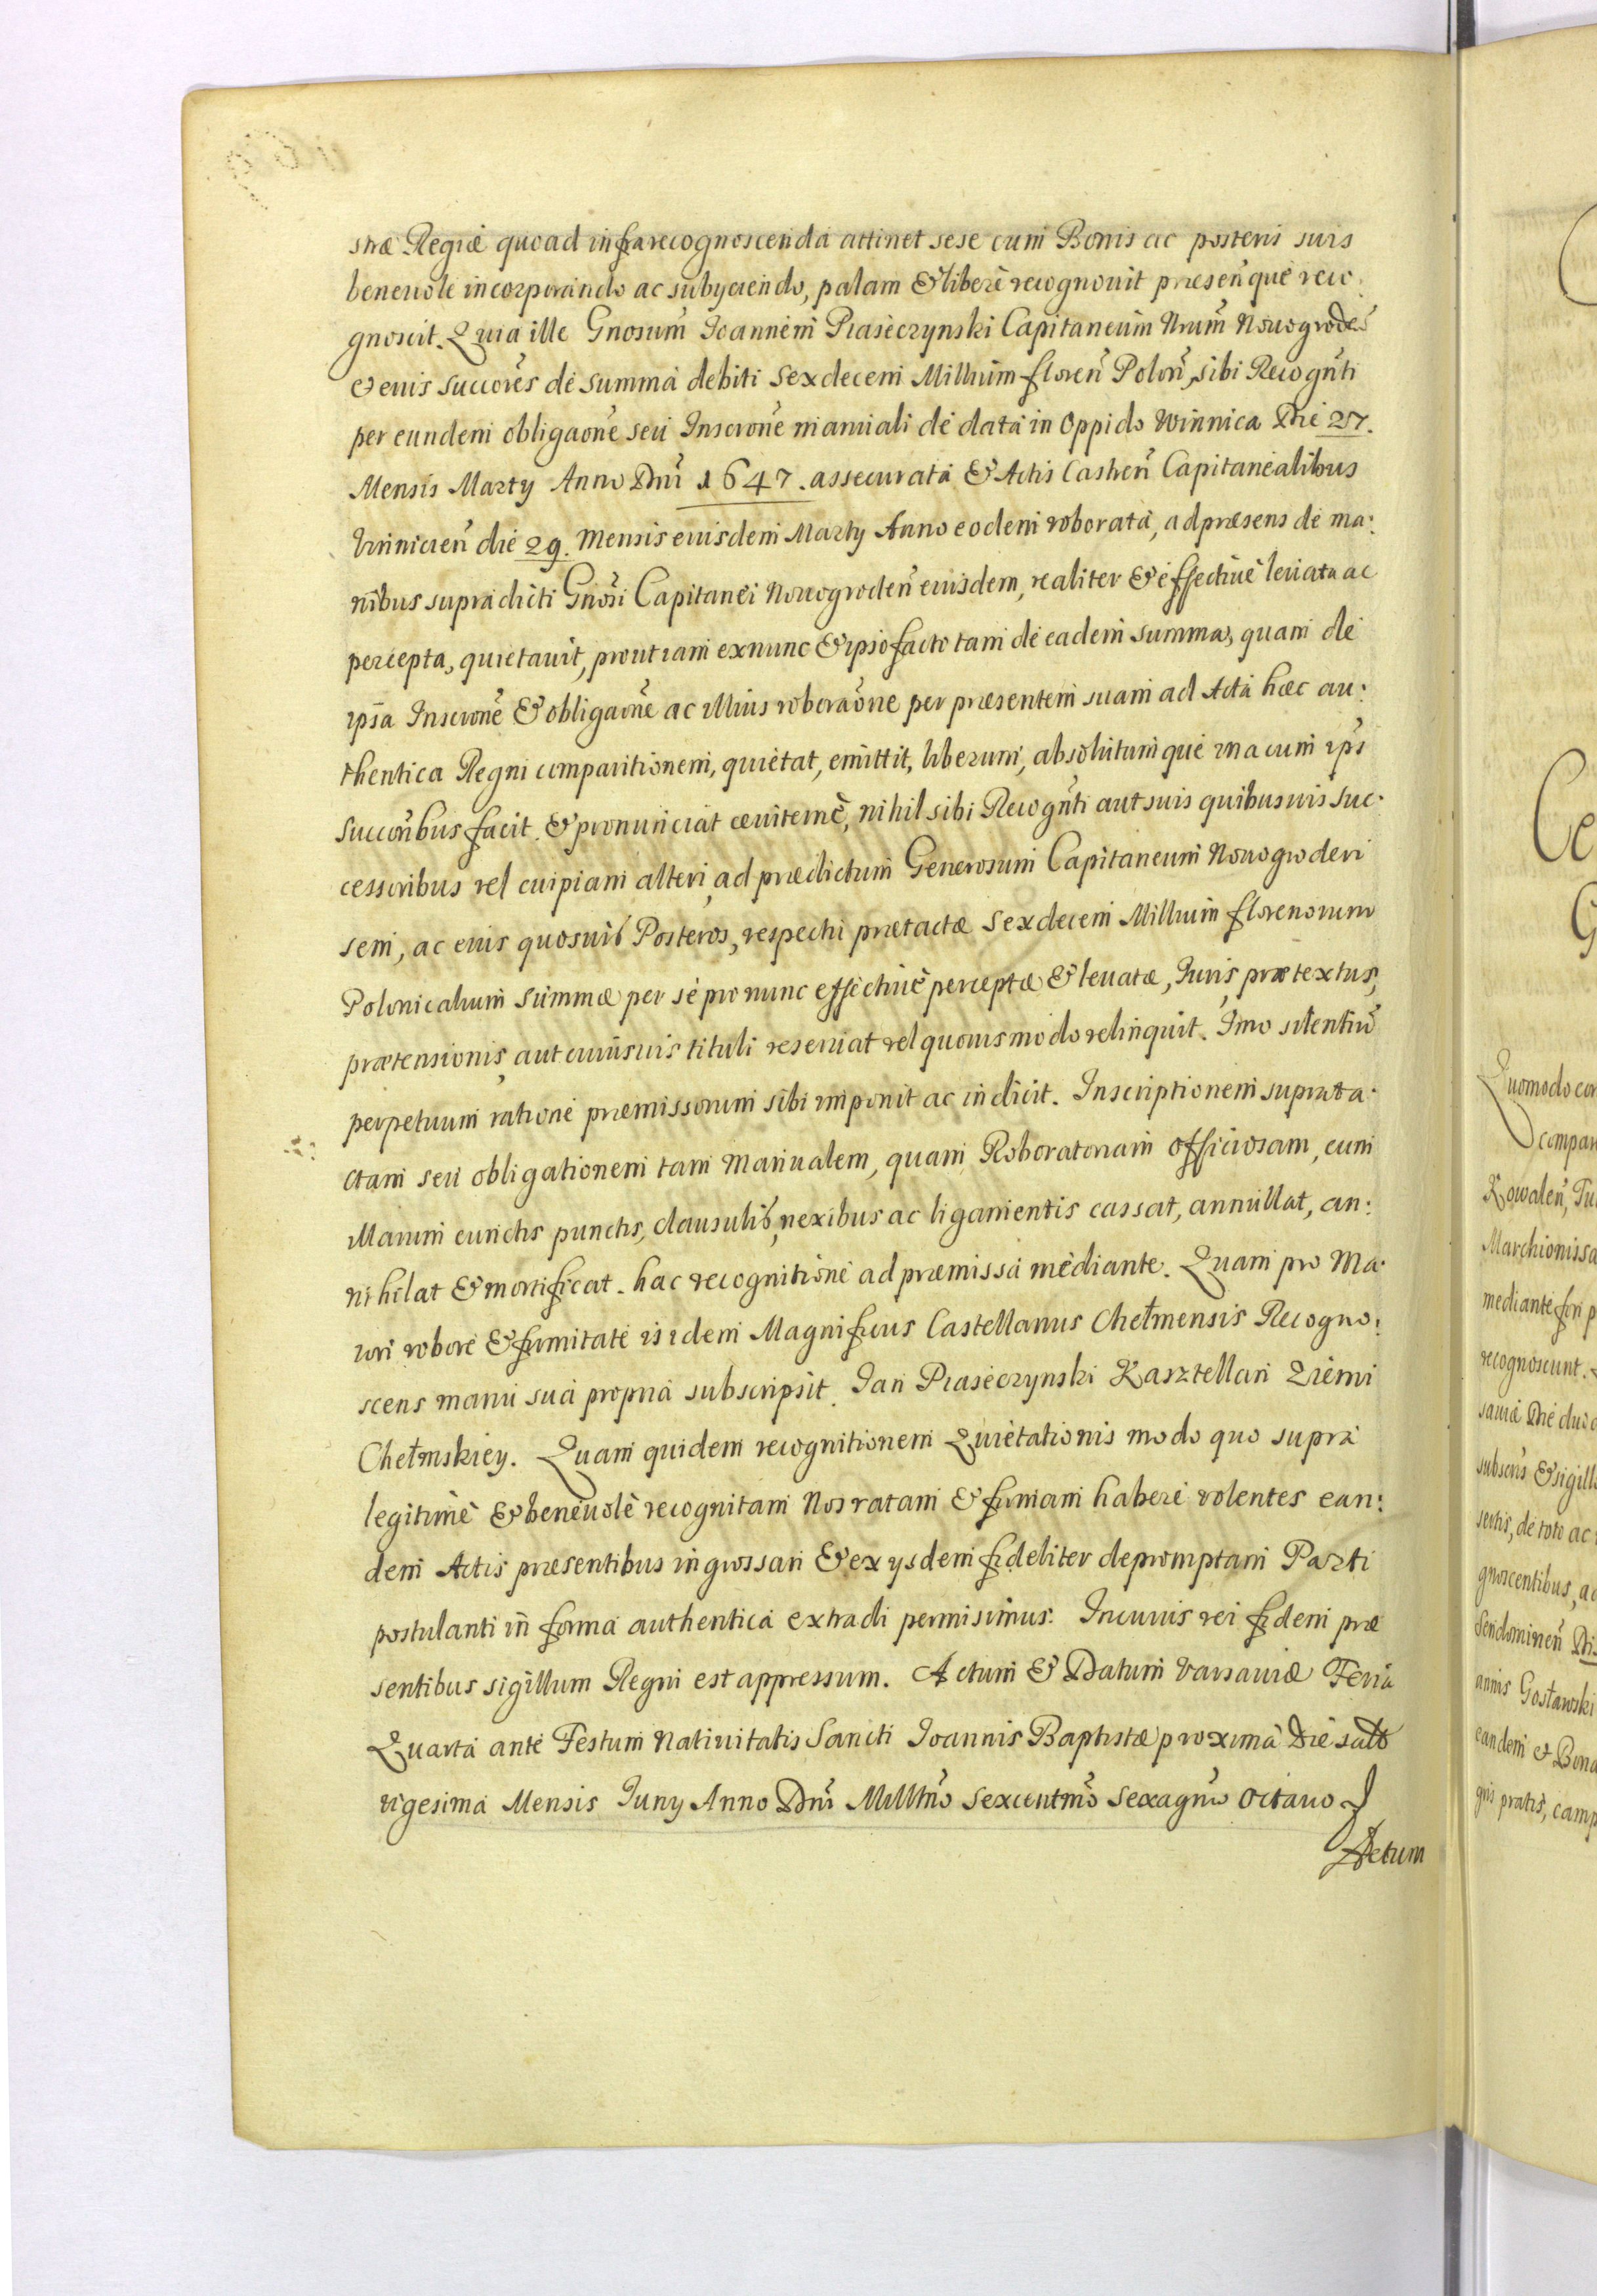 stræ Regiæ quoad infrarecognoscenda attinet sese cum Bonis ac posteris suis
beneuole incorporando ac subyciendo, palam & liberè recognouit præsenque reco:
gnoscit. Quia ille Gnosum Joannem Piaseczynski Capitaneum Nrum Nouogroden
& eius succores de summa debiti Sexdecem Millium floren Polon, sibi Recognti
per eundem obligaone seu Inscrone manuali de data in Oppido Winnica Die 27.
Mensis Marty Anno Dni 1647. assecurata & Actis Castren Capitanealibus
Vinnicien die 29. Mensis eiusdem Marty Anno eodem roborata, ad præsens de ma:
nibus supradicti Gnosi Capitanei Nouogroden eiusdem, realiter & effectiuè leuata ac
percepta, quietauit, prout iam exnunc & ipso facto tam de eadem summa, quam de
ipsa Inscrone & obligaone ac illius roboraone per præsentem suam ad Acta hæc au:
thentica Regni comparitionem, quietat, emittit, liberum, absolutumque una cum ips
succoribus facit & pronunciat æuiternè, nihil sibi Recognti aut suis quibusuis suc:
cessoribus vel cuipiam alteri, ad prædictum Generosum Capitaneum Nouogroden
sem, ac eius quosuis Posteros, respectu prætactæ Sexdecem Millium florenorum
Polonicalium summæ per se pro nunc effectiuè perceptæ & leuatæ, Juris, prætextus,
prætensionis, aut cuiusuis tituli reseruat vel quouismodo relinquit. Imo silentiu
perpetuum ratione præmissorum sibi imponit ac indicit. Inscriptionem suprata:
ctam seu obligationem tam Manualem, quam Roboratoriam officiosam, cum
illarum cunctis punctis, clausulis, nexibus ac ligamentis cassat, annullat, an:
nihilat & mortificat. hac recognitione ad præmissa mediante. Quam pro Ma:
iori robore & firmitate is idem Magnificus Castellanus Chełmensis Recogno:
scens manu sua propria subscripsit. Jan Piaseczynski Kasztellan Ziemi
Chełmskiey. Quam quidem recognitionem Quietationis modo quo supra
legitimè & beneuolè recognitam Nos ratam & firmam habere volentes ean:
dem Actis præsentibus ingrossari & ex ysdem fideliter depromptam Parti
postulanti in forma authentica extradi permisimus. In cuius rei fidem præ
sentibus sigillum Regni est appressum. Actum & Datum Varsauiæ Feria
Quarta ante Festum Natiuitatis Sancti Joannis Baptistæ proxima Die
vigesima Mensis Juny Anno Dni Millmo Sexcentmo Sexagmo Octauo
Actum
Quomodo
Marchionissa
mediante
recognoscunt.
Gosławski